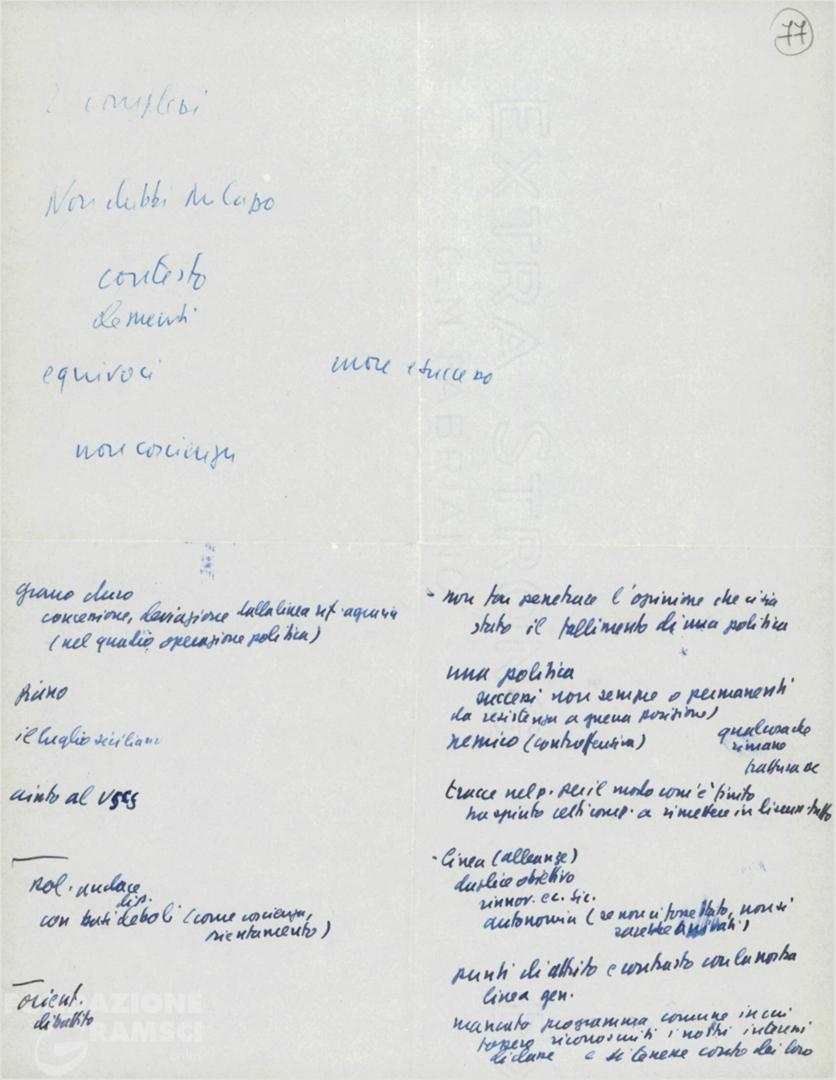 77
2 complessi
Non dubbi Milazzo
contesto
elementi
equivoci
more e successo
non coscienza
EXTRA STRONG
C.M. FABRIANO
grano duro
concessione, deviazione dalla linea rif. agraria
(nel quadro, operazione politica)
piano
il luglio siciliano
aiuto al
pol. audace
dip.
con basi deboli (come coscienza,
orientamento)
orient.
dibattito
- non far penetrare l'opinione che ci sia
stato il fallimento di una politica
una politica
successi non sempre o permanenti
da resistenza a guerra posizione)
nemico (controffensiva)
qualcosa che
rimane
tracce nel p. per il modo com'è finito
ha spinto certi comp. a rimettere in discuss. tutto
- linea (alleanze)
duplice obiettivo
rinnov. ec. sic.
autonomia (se non ci fosse stato, non si
sarebbe
punti di attrito e contrasto con la nostra
linea gen.
mancato programma comune in cui
fossero riconosciuti i nostri interessi
di classe e si tenesse conto dei loro
FONDAZIONE
GRAMSCI